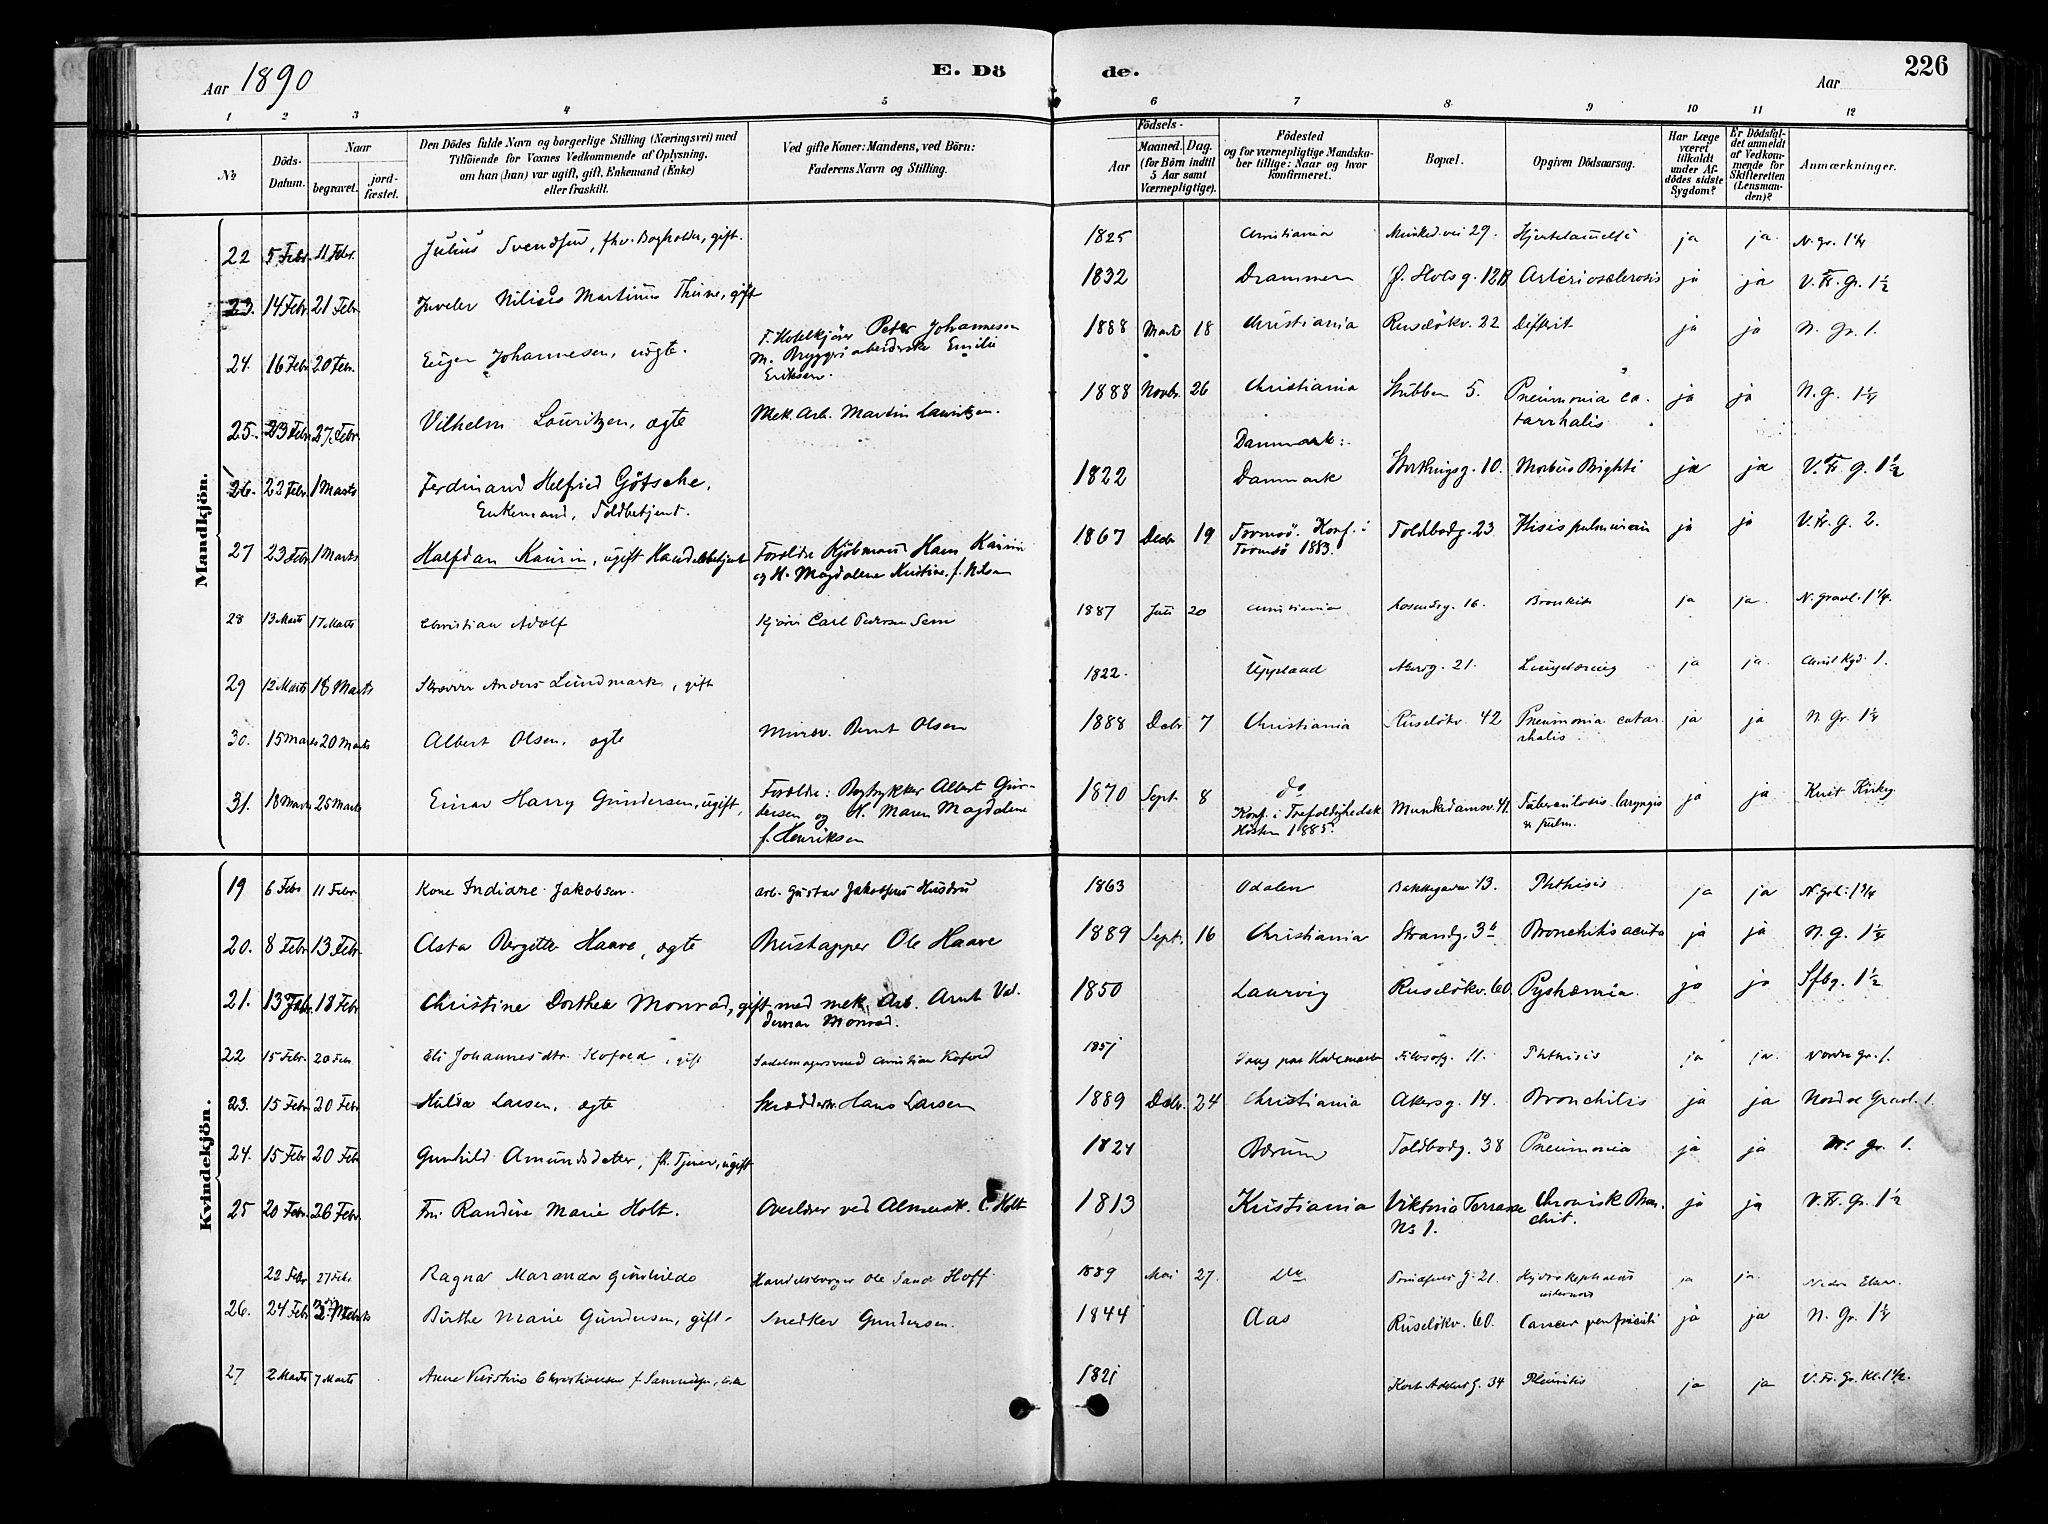 Aar 1890
E. Dö de.
Aar
226
1 2 3 4 5 6 7 8 9 10 11 12
No
Döds-Datum.
Naar
begravet.
jord-fæstet.
Den Dödes fulde Navn og borgerlige Stilling (Næringsvei) med
Tilföiende for Voxnes Vedkommende af Oplysning,
om han (hun) var ugift, gift, Enkemand (Enke)
eller fraskilt.
Ved gifte Koner: Mandens, ved Börn:
Faderens Navn og Stilling.
Födsels-
Aar
Maaned. Dag.
(for Börn indtil
5 Aar samt
Værnepligtige).
Födested
og for værnepligtige Mandska-
ber tillige: Naar og hvor
konfirmeret.
Bopæl.
Opgiven Dödsaarsag.
Har Læge
været
tilkaldt
under Af-
dödes sidste
Sygdom?
Er Dödsfal-
det anmeldt
af Vedkom-
mende for
Skifteretten
(Lensman-
den)?
Anmærkninger.
Mandkjön.
22 5 Febr. 11 Febr. Julius Svendsen, fhv. Bogholder, gift. 1825 Christiania 29. ja ja N. Gr. 1¼
23. 14 Febr 21 Febr. Juveler Martinus Thune, gift 1832 Drammen Ø. Holsg. 12B Arteriosclerosis ja ja V. Fr. Gr. 1½
24. 16 Febr 20 Febr. Eugen Johannesen, uægte. F. Hotelkjører Peter Johannesen
M. Bryggeriarbeiderske Emilie
Eriksen. 1888 Marts 18 Christiania Ruseløkv. 22 Difterit ja ja N. Gr. 1.
25. 23 Febr 27. Febr. Vilhelm Lauritzen, ægte Mek. Arb. Martin Lauritzen. 1888 Novbr. 26 Christiania Stubben 5. Pneumonia ca-
tarrhalis ja ja N. G. 1¼
Danmark:
26. 22 Febr. 1 Marts Ferdinand Helfried Götsche,
Enkemand, Toldbetjent. 1822 Danmark Stortingsg. 10. Morbus Brighti ja ja V. Fr. G. 1½
27 23 Febr 1 Marts Halfdan Kaurin, ugift Handelsbetjent Forældre Kjøbmand Hans Kaurin
og H. Magdalene Kristine f. 1867 Decbr 19 Tromsø. Konf. i
Tromsø 1883. Toldbodg. 23 ja ja V. Fr. G. 2.
28 13 Marts 17 Marts Christian Adolf Carl Pedersen Sem 1887 Juli 20 Christiania Rosenborgg. 16. Bronkitis ja ja. N. Gravl. 1¼.
29 12 Marts 18 Marts Skrædder Anders Lundmark, gift 1822. Uppland Akersg. 21. ja ja. Christ Kgd. 1.
30. 15 Marts 20 Marts Albert Olsen, ægte Bernt Olsen 1888 Decbr 7 Christiania Ruseløkv. 42 Pneumonia catar-
rhalis. ja ja N. Gr. 1¼
31. 18 Marts 25 Marts Einar Harry Gundersen, ugift, Forældre: Bogtrykker Albert Gun-
dersen og H. Maren Magdalene
f. Henriksen 1870 Sept 8 do
Konf. i Trefoldighedsk
Høsten 1885. Munkedamsv. 41. Tuberculosis laryngis
& pulm. ja ja
Kvindekjön.
19 6 Febr 11 Febr. Kone Indiane Jakobsen. Arb. Gustav Jakobsens Hustru 1863 Odalen Bakkegaden 13. Phthisis ja ja
20. 8 Febr 13 Febr. Asta Bergitte Haave, ægte Ole Haave 1889 Sept. 16 Christiania Strandg. 3b Bronchitis acuta ja ja N. G. 1¼
21. 13 Febr. 18 Febr Christine Dorthea Monrad, gift med mek. Arb. Arnt Val-
demar Monrad. 1850 Laurvig Ruseløkv. 60 Pyohæmia. ja ja Sfbg. 1½
22 15 Febr. 20 Febr Eli Johannesdtr. Kofoed, gift Sadelmagersvend Christian Kofoed 1851 Vang paa Hedemarken Filosofg. 11. Phthisis ja ja. Nordre Gr. 1.
23. 15 Febr 20 Febr Hulda Larsen, ægte Hans Larsen 1889 Decbr. 24 Christiania Akersg. 14. Bronchitis ja ja Nordre Gravl. 1.
24. 15 Febr 20 Febr Gunhild Amundsdatter, fh. Tjener, ugift 1824 Bærum Toldbodg. 38 Pneumonia ja ja N. Gr. 1.
25 20 Febr. 26 Febr. Fru Randine Marie Holt. Overlærer ved Almuesk. C. Holt 1813 Kristiania Viktoria Terrasse
No 1. Chronisk Bron-
chit. ja ja V. Fr. Gr. 1½
22 Febr 27 Febr Ragna Maranda Gunhilda Handelsborger Ole Sande Hoff 1889 Mai 27. Do 21. Hydrokephalus
internus ja ja.
26. 24 Febr. 3 Marts Birthe Marie Gundersen, gift. Snedker Gundersen. 1844 Aas Ruseløkv. 60. Cancer ja ja N. Gr. 1¼
27 2 Marts 7 Marts Anne Christiansen 1821 Kort Adelers G. 34 Pleuritis ja ja V. Fr. Gr. Kl. 1½.